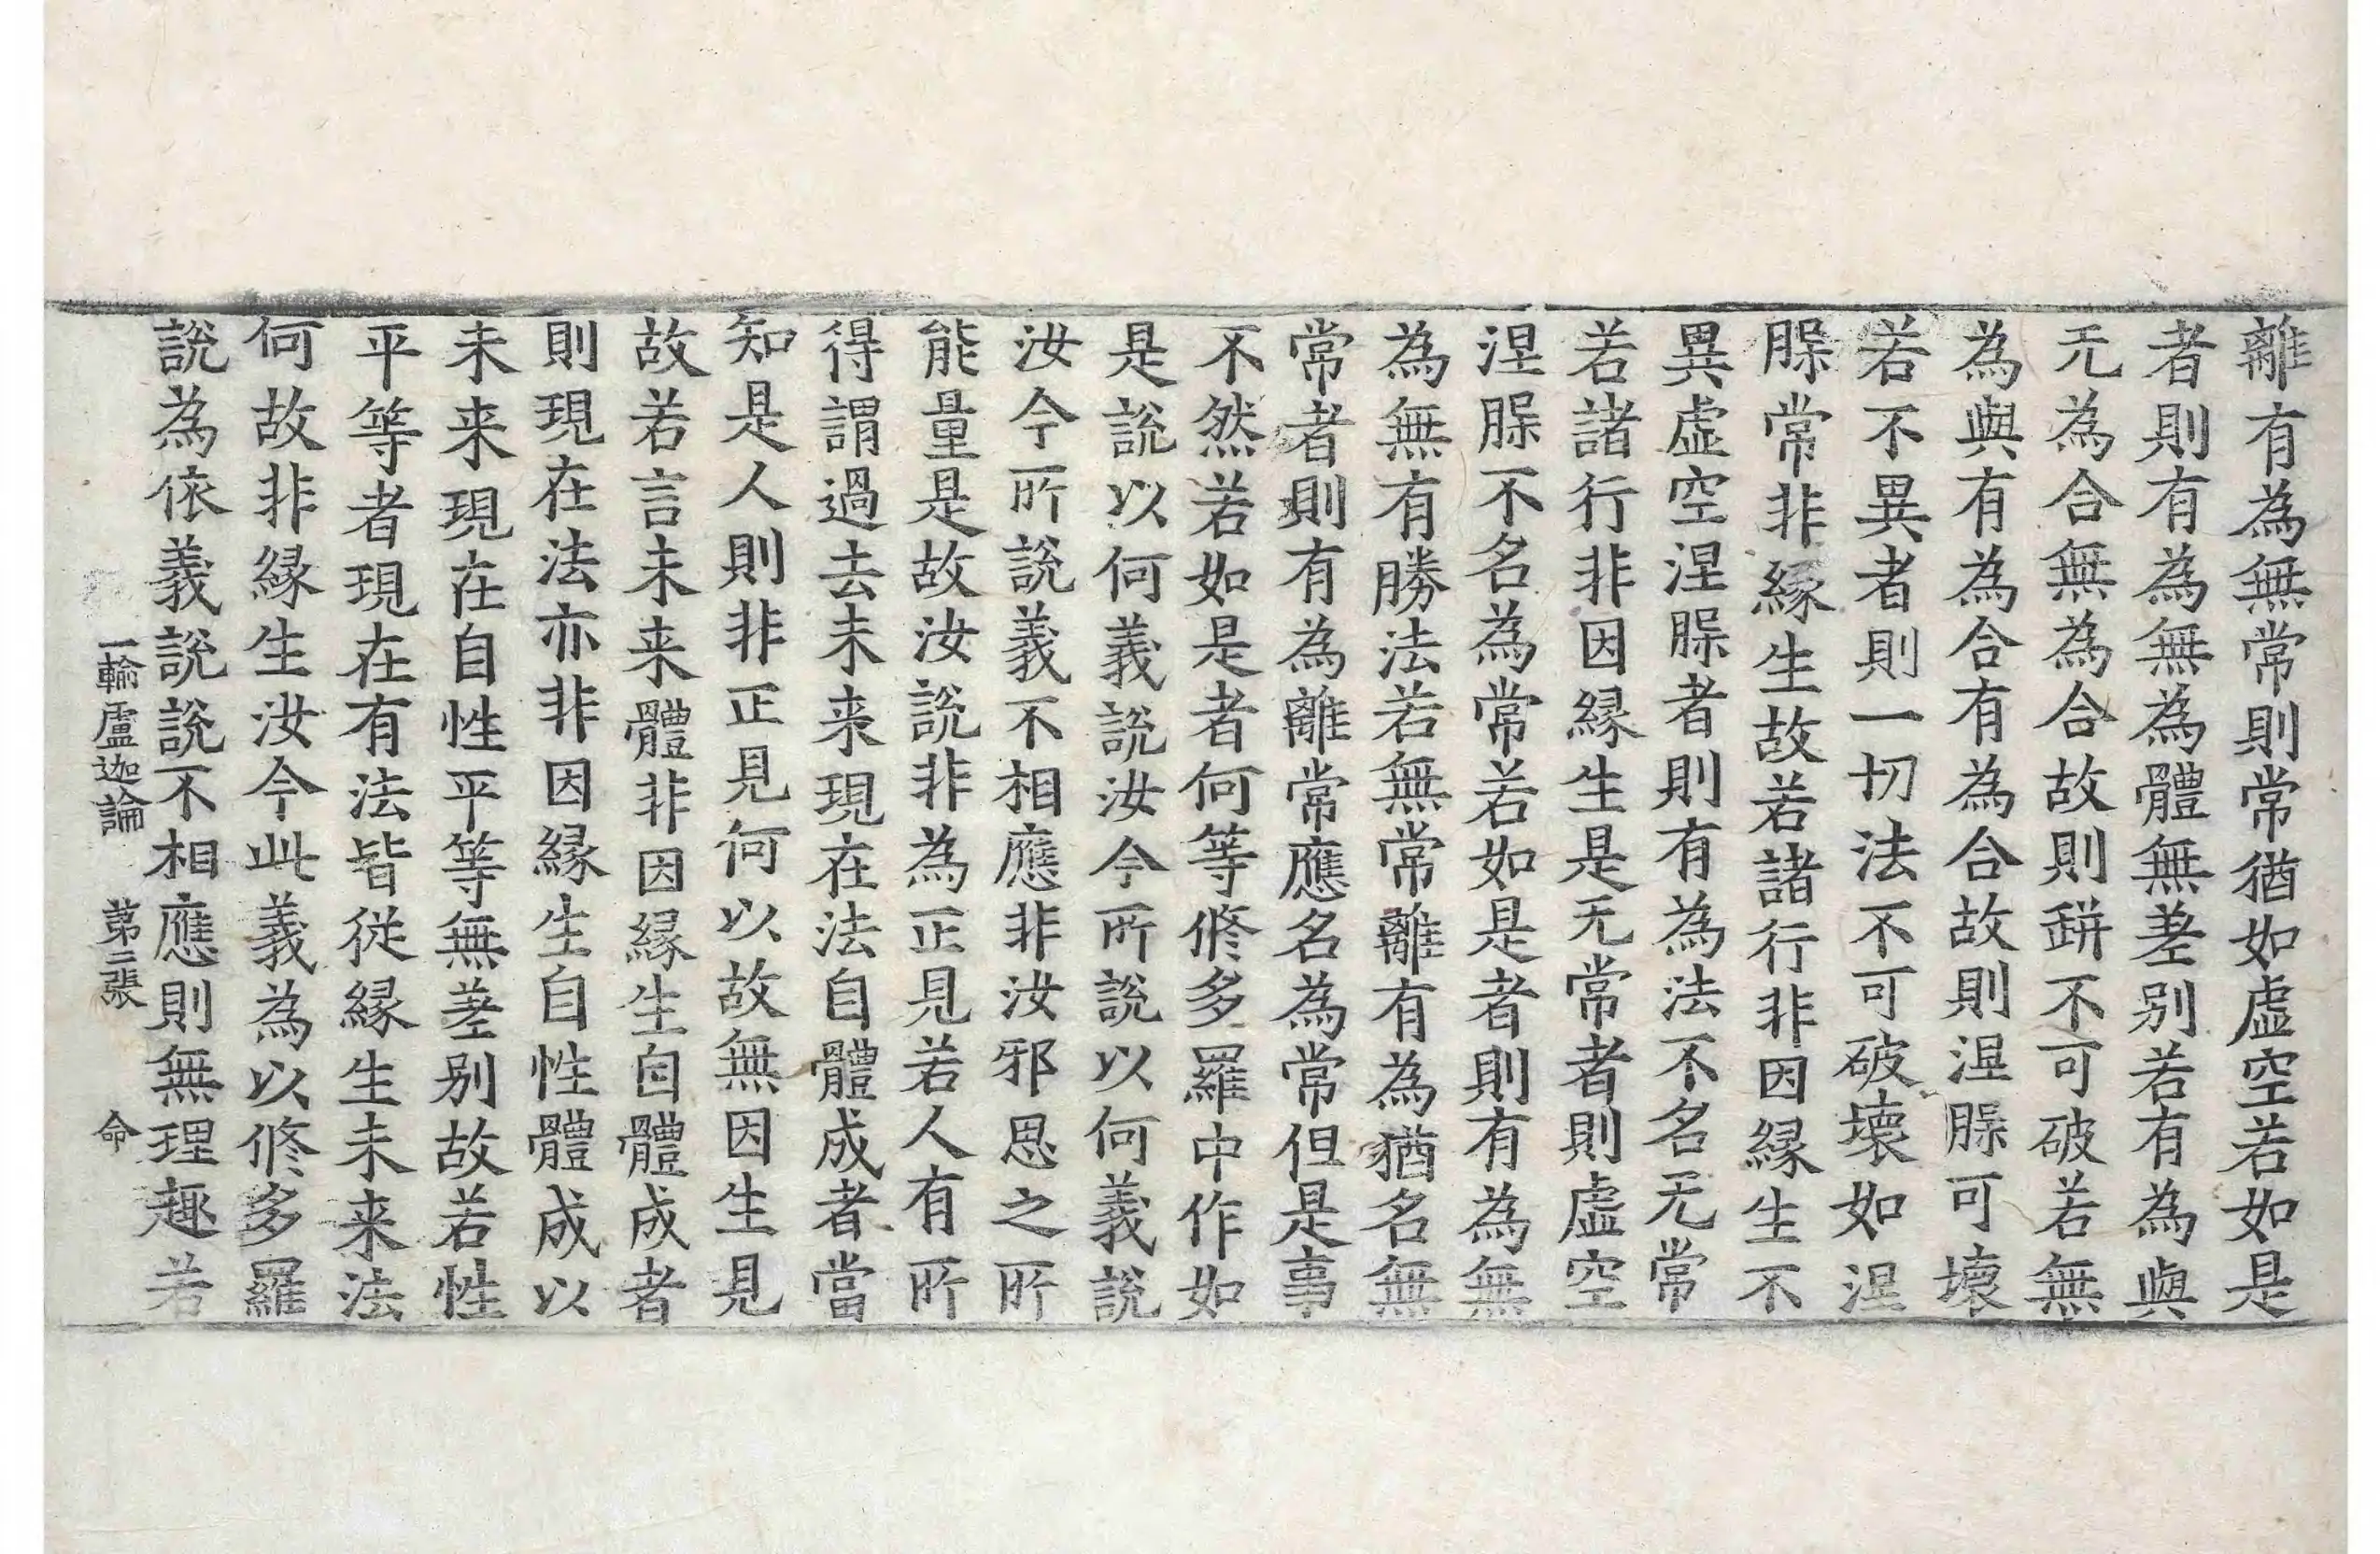 離有為無常則常猶如虛空若如是
者則有為無為體無差別若有為與
无為合無為合故則缾不可破若無
為與有為合有為合故則涅槃可壞
若不異者則一切法不可破壞如涅
槃常非緣生故若諸行非因緣生不
異虛空涅槃者則有為法不名无常
若諸行非因緣生是无常者則虛空
涅槃不名為常若如是者則有為無
為無有勝法若無常離有為猶名無
常者則有為離常應名為常但是事
不然若如是者何等修多羅中作如
是說以何義說汝今所說以何義說
汝今所說義不相應非汝邪思之所
能量是故汝說非為正見若人有所
得謂過去未来現在法自體成者當
知是人則非正見何以故無因生見
故若言未来體非因緣生自體成者
則現在法亦非因緣生自性體成以
未来現在自性平等無差別故若性
平等者現在有法皆從緣生未来法
何故非緣生汝今此義為以修多羅
說為依義說說不相應則無理趣若
一輸盧迦論　第二張　命